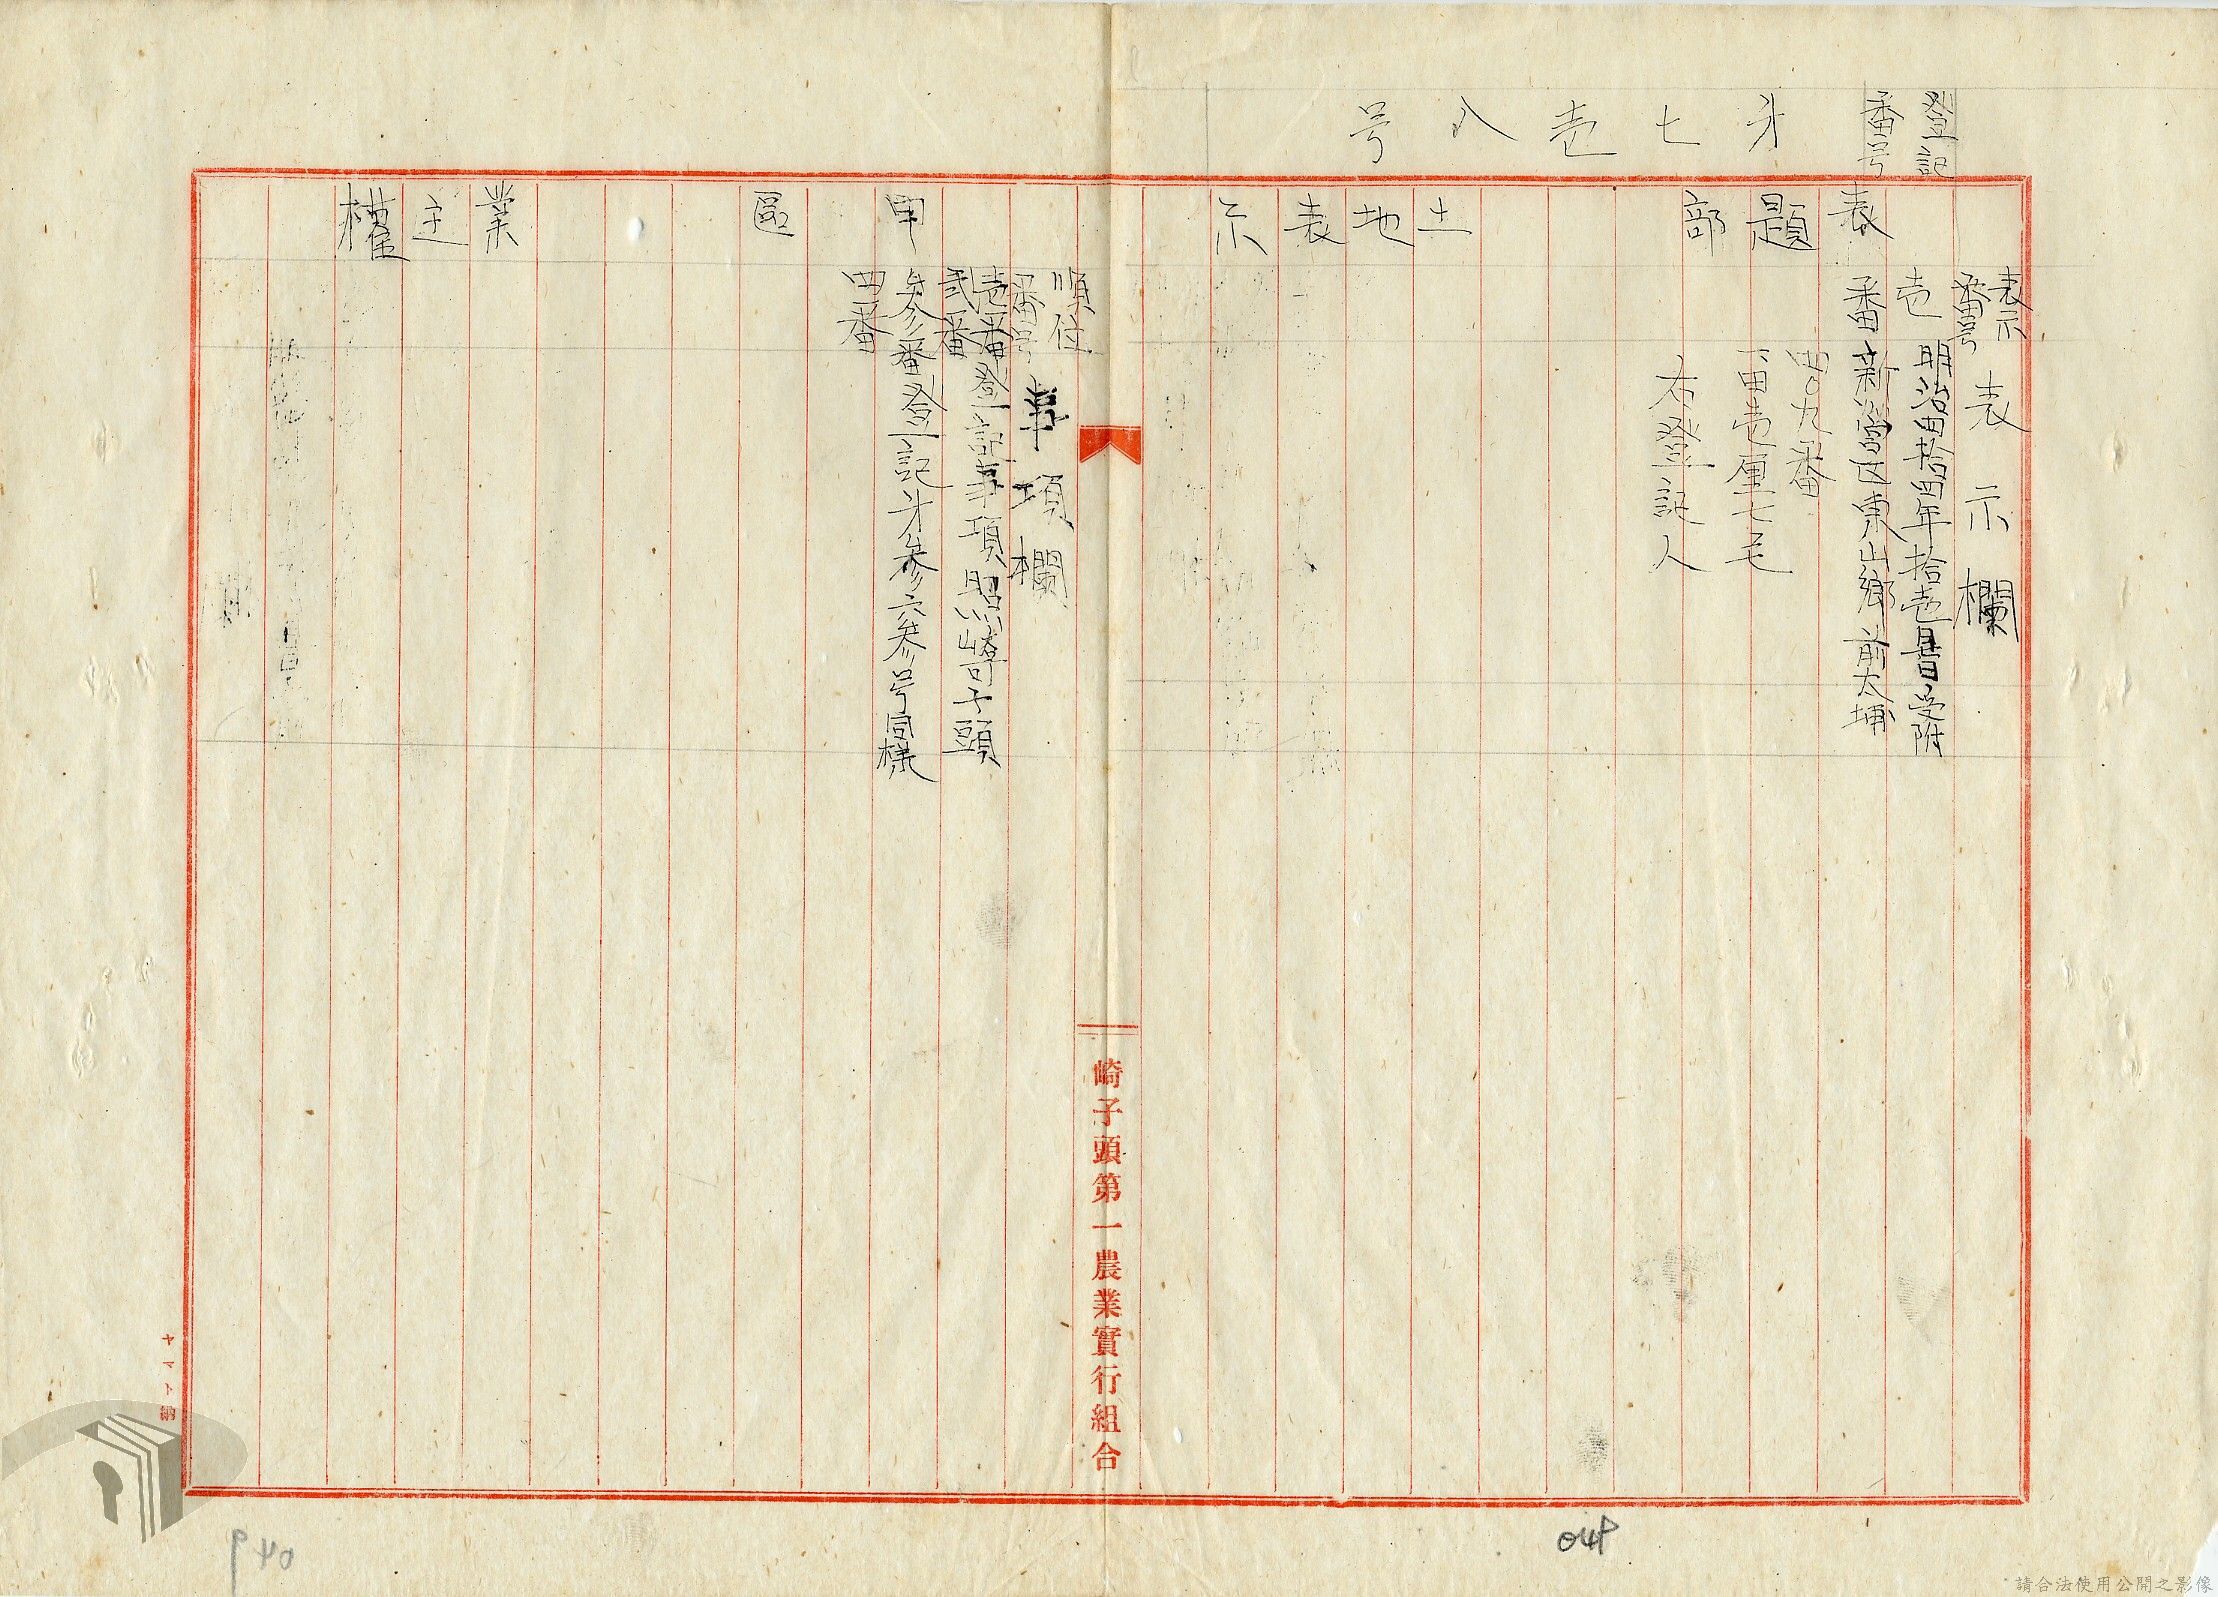 登記
番号
才七壱八号
表題部
土地表示
表示
番号
表示欄
壱番
明治四拾四年拾壱月　日受附
新冨区東山鄉前大埔
四〇九番
一田壱厘七毛
右登記人
甲區
業主權
順位
番号
事項欄
壱番
弐番
登記事項照崎子頭
参番登記才参六参号同樣
四番
崎子頭第一農業實行組合
ヤマト納
049
P40
請合法使用公開之影像